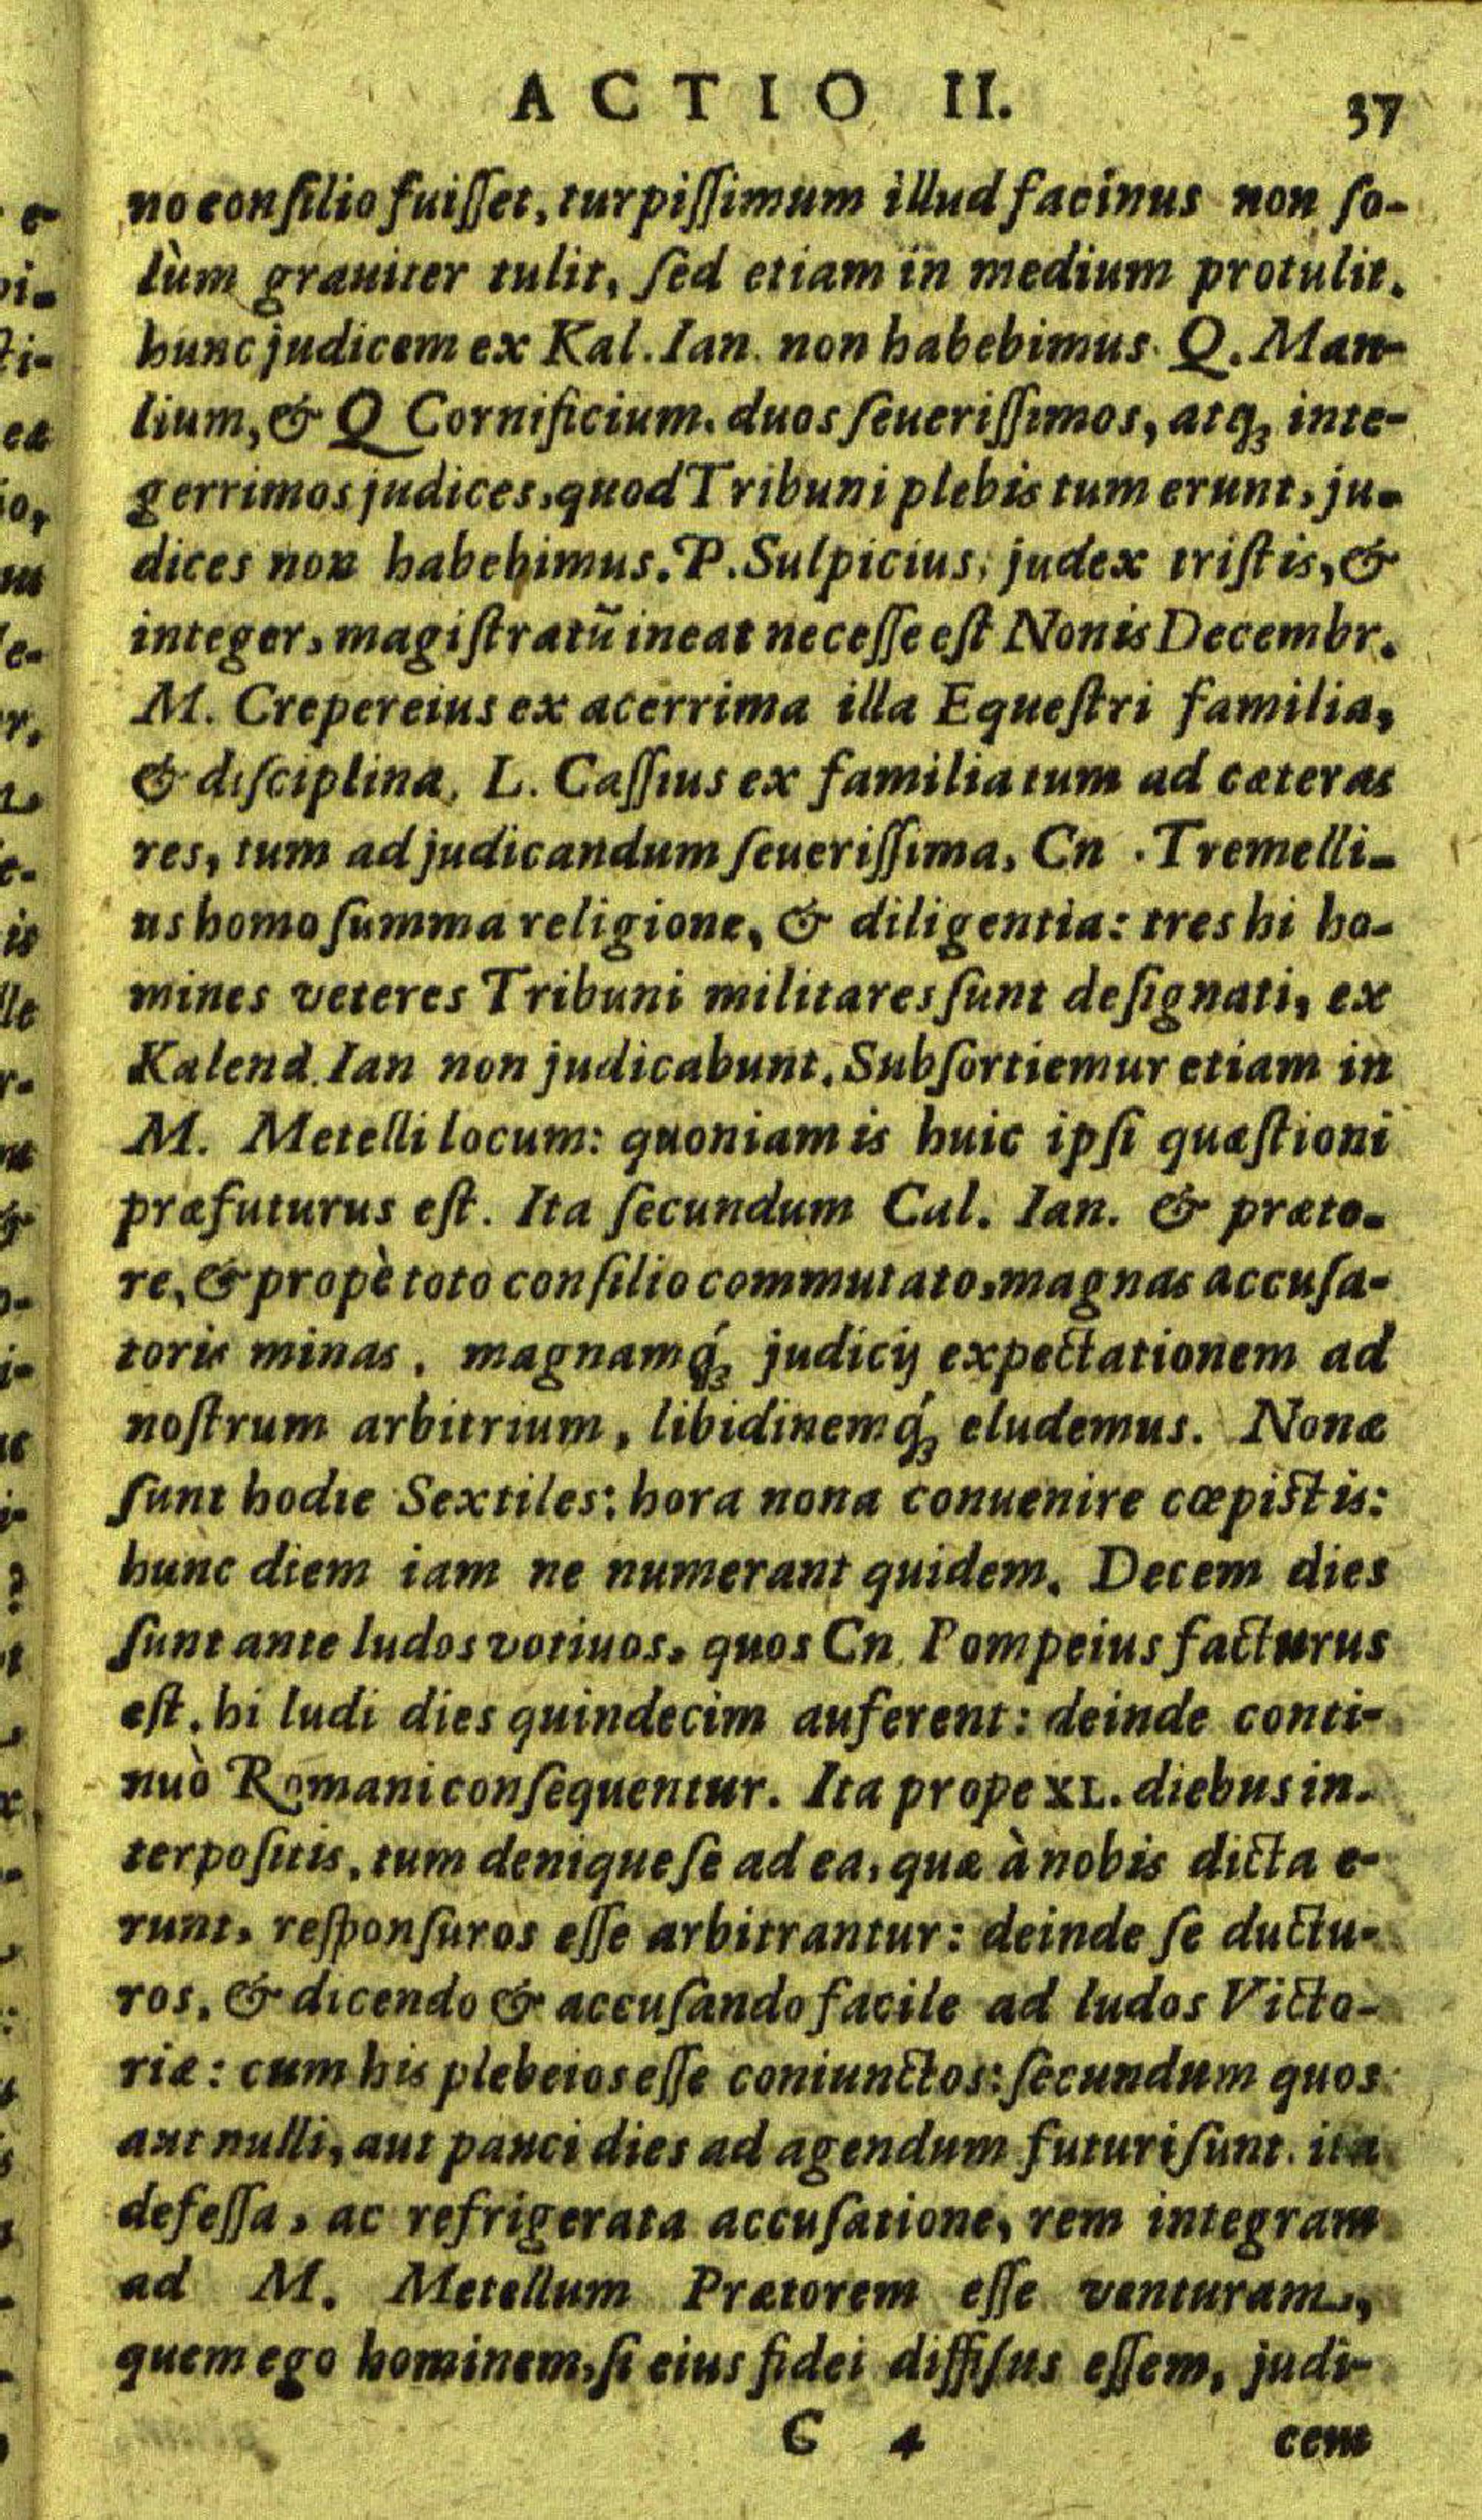 ACTIO II. 37
no consilio fuiſſet, turpiſſimum illud facinus non ſo-
lùm grauiter tulit, ſed etiam in medium protulit.
hunc judicem ex Kal. Ian. non habebimus. Q. Man-
lium, & Q Cornificium. duos ſeueriſſimos, atq; inte-
gerrimos judices, quod Tribuni plebis tum erunt, ju-
dices non habebimus. P. Sulpicius, judex triſtis, &
integer, magiſtratũ ineat neceſſe eſt Nonis Decembr.
M. Crepereius ex acerrima illa Equeſtri familia,
& diſciplina, L. Caſſius ex familia tum ad cæteras
res, tum ad judicandum ſeueriſſima, Cn. Tremelli-
us homo ſumma religione, & diligentia: tres hi ho-
mines veteres Tribuni militares ſunt deſignati, ex
Kalend. Ian non judicabunt. Subſortiemur etiam in
M. Metelli locum: quoniam is huic ipſi quæſtioni
præfuturus eſt. Ita ſecundum Cal. Ian. & præto-
re, & propè toto conſilio commutato, magnas accuſa-
toris minas, magnamq́; judicij expectationem ad
noſtrum arbitrium, libidinemq́; eludemus. Nonæ
ſunt hodie Sextiles: hora nona conuenire cœpistis:
hunc diem iam ne numerant quidem. Decem dies
ſunt ante ludos votiuos, quos Cn. Pompeius facturus
eſt. hi ludi dies quindecim auferent: deinde conti-
nuò Romani conſequentur. Ita prope XL. diebus in-
terpoſitis, tum denique ſe ad ea, quæ à nobis dicta e-
runt, reſponſuros eſſe arbitrantur: deinde ſe ductu-
ros, & dicendo & accuſando facile ad ludos Victo-
riæ: cum his plebeios eſſe coniunctos: ſecundum quos
aut nulli, aut pauci dies ad agendum futuri ſunt. ita
defeſſa, ac refrigerata accuſatione, rem integram
ad M. Metellum Prætorem eſſe venturam,
quem ego hominem, ſi eius fidei diffiſus eſſem, judi-
C 4 cem